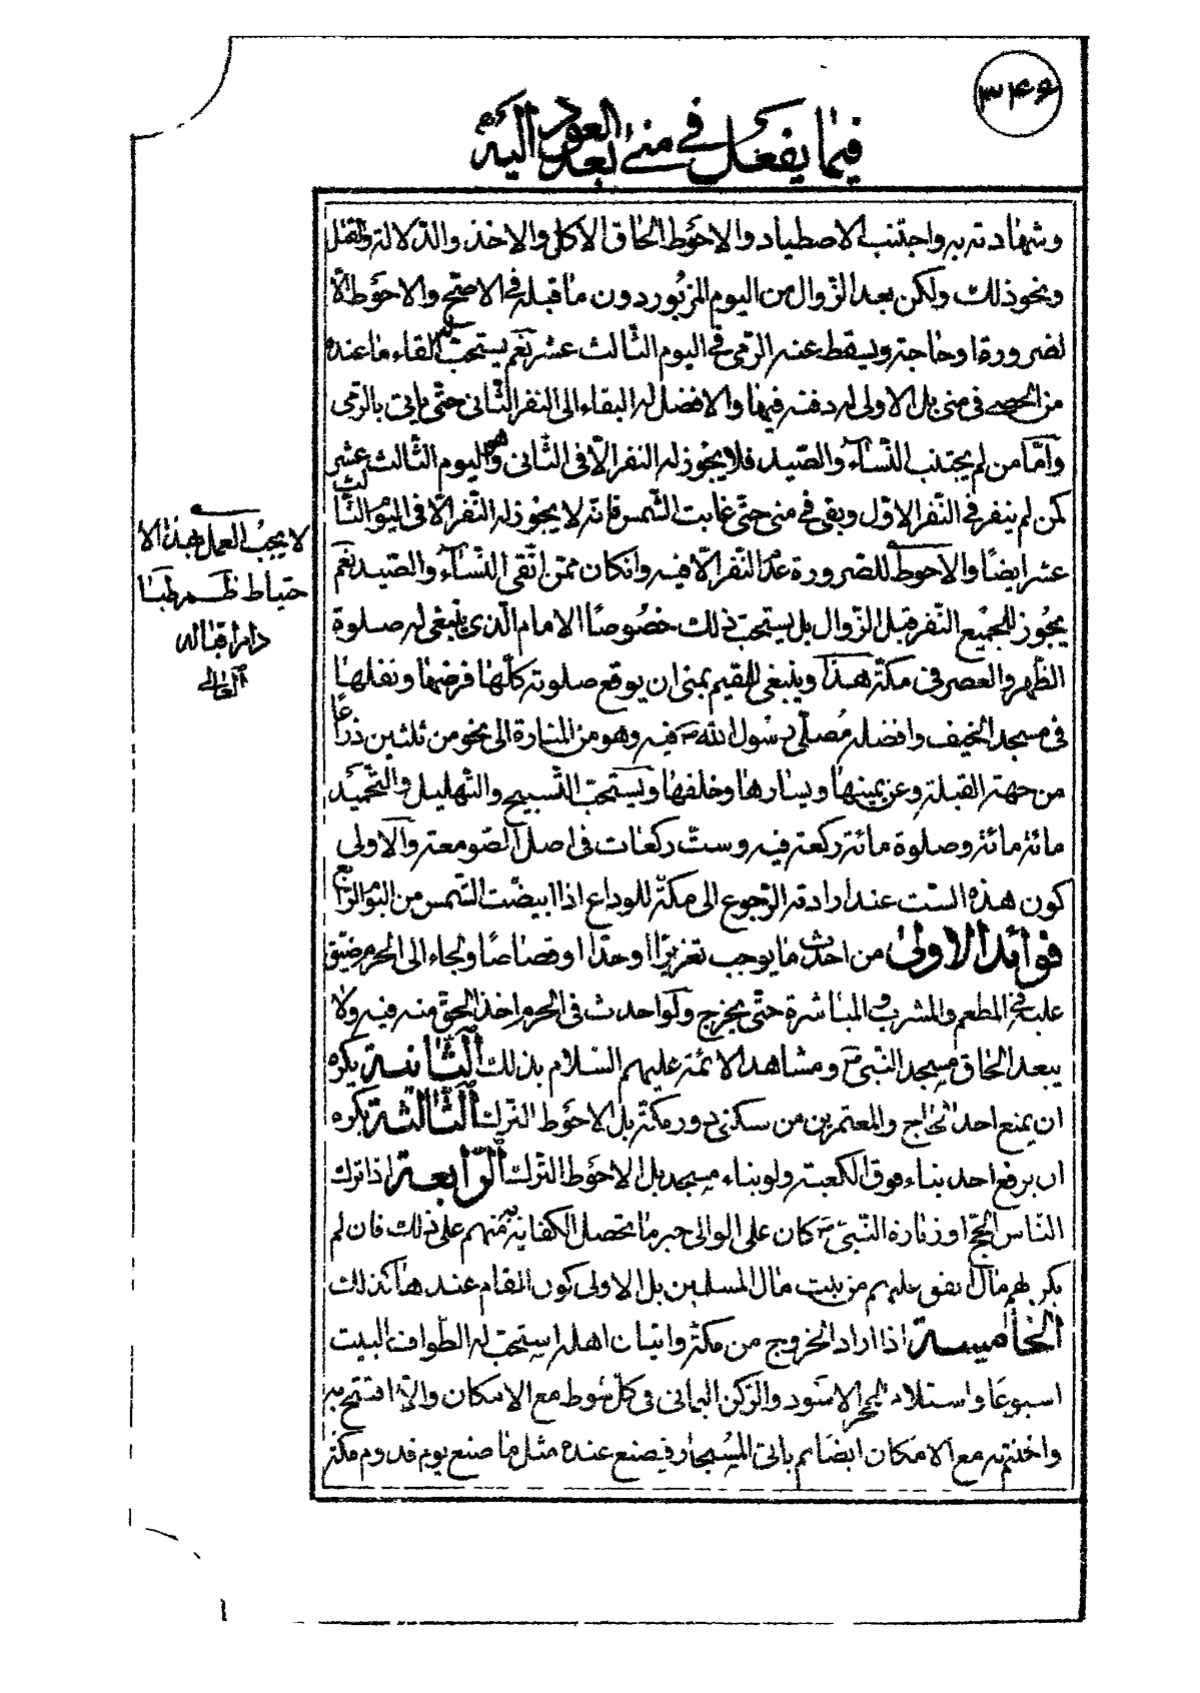 ٣٤٦
فيما يفعل في منى بعد العود اليه
وشهادته به واجتنب الاصطياد والاحوط الحاق الاكل والاخذ والدلالة والقتل
ونحو ذلك ولكن بعد الزوال من اليوم المزبور دون ما قبله في الاصح والاحوط الا
لضرورة او حاجة ويسقط عنه الرمي في اليوم الثالث عشر نعم يستحب له القاء ما عنده
من الحصى في منى بل الاولى له دفنه فيها والافضل له البقاء الى النفر الثاني حتى ياتي بالرمي
وامّا من لم يجتنب النّسآء والصّيد فلا يجوز له النفر الّا في الثاني وهو اليوم الثالث عشر
كمن لم ينفر في النّفر الاوّل وبقي في منى حتى غابت الشّمس فانه لا يجوز له النّفر الّا في اليوم الثالث
عشر ايضًا والاحوط للضرورة عدم النّفر الّا فيه وانكان ممّن اتّقى النّسآء والصّيد نعم
يجوز للجميع النّفر قبل الزّوال بل يستحب ذلك خصوصًا الامام الّذي ينبغي له صلوة
الظّهر والعصر في مكّة هذا وينبغي للمقيم بمنى ان يوقع صلوته كلّها فرضها ونفلها
في مسجد الخيف وافضله مُصلّى رسُول الله ص فيه وهو من المنارة الى نحو من ثلثين ذراعًا
من جهة القبلة وعن يمينها ويسارها وخلفها ويستحبّ التّسبيح والتّهليل والتّحميد
مائة مائة وصلوة مائة ركعة فيه وستّ ركعات في اصل الصّومعة والاولى
كون هذه الستّ عند ارادته الرّجوع الى مكّة للوداع اذا ابيضّت الشّمس من اليوم الرّابع
فوائد الاولى من احدث ما يوجب تعزيرًا او حدّا او قصاصًا ولجاء الى الحرم ضيّق
عليه في المطعم والمشرب والمباشرة حتّى يخرج ولو احدث في الحرم اخذ الحقّ منه فيه ولا
يبعد الحاق مسجد النّبي ص ومشاهد الائمّة عليهم السّلام بذلك الثّانية يكره
ان يمنع احد الحاج والمعتمرين من سكنى دور مكّة بل الاحوط التّرك الثّالثة يكره
ان يرفع احد بناء فوق الكعبة ولو بناء مسجد بل الاحوط التّرك الرّابعة اذا ترك
النّاس الحجّ او زيارة النّبيّ ص كان على الوالي جبر ما يحصل الكفاية منهم على ذلك فان لم
يكن لهم مال انفق عليهم من بيت مال المسلمين بل الاولى كون المقام عندهما كذلك
الخامسة اذا اراد الخروج من مكّة واتيان اهله استحبّ له الطّواف بالبيت
اسبوعًا واستلام الحجر الاسود والرّكن اليماني في كلّ شوط مع الامكان والّا افتتح به
واختتم به مع الامكان ايضًا ثم ياتي المستجار فيصنع عنده مثل ما صنع يوم قدوم مكّة
لا يجب العمل بهذا الا
حتياط ظـم طبا
دام اقباله
العالى